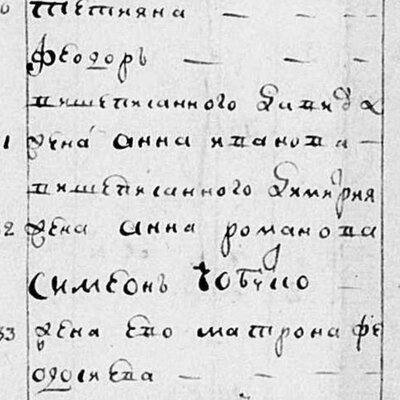 тетияна
Феодоръ
вишеписанного Давида
1 жена анна иванова
вишеписанного Димитрия
2 жена анна романова
Симеонъ
33 жена ево матрона фе
одосиева